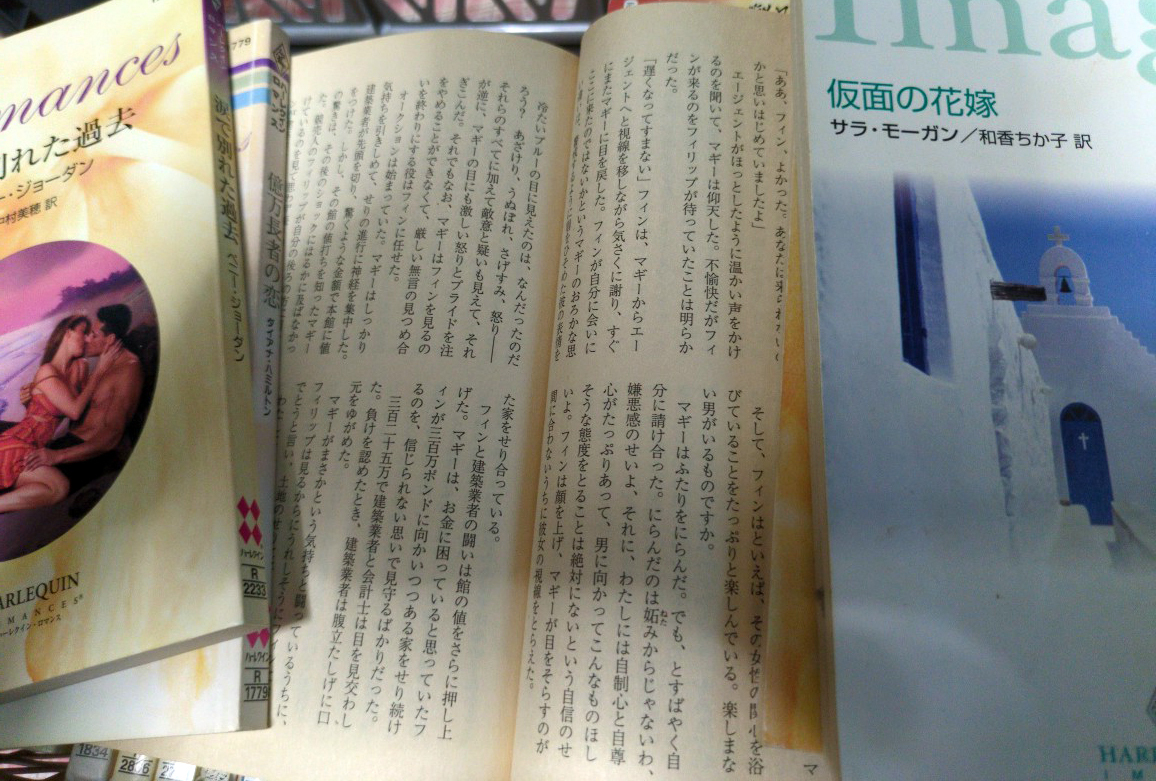 mances
れた過去
ー・ジョーダン
中村美穂 訳
ARLEQUIN
MANCES®
ーレクイン・ロマンス
別れた過去 ペニー・ジョーダン
ハーレクイン
R
2233
779
ロマンス
億万長者の恋
ダイアナ・ハミルトン
ハーレクイン
R
1779
「ああ、フィン、よかった。あなたに来られない
かと思いはじめていましたよ」
エージェントがほっとしたように温かい声をかけ
るのを聞いて、マギーは仰天した。不愉快だがフィ
ンが来るのをフィリップが待っていたことは明らか
だった。
「遅くなってすまない」フィンは、マギーからエー
ジェントへと視線を移しながら気さくに謝り、すぐ
にまたマギーに目を戻した。フィンが自分に会いに
ここに来たのではないかというマギーのおろかな思
そして、フィンはといえば、その女性の関心を浴
びていることをたっぷりと楽しんでいる。楽しまな
い男がいるものですか。
マギーはふたりをにらんだ。でも、とすばやく自
分に請け合った。にらんだのは妬みからじゃないわ、
ねた
嫌悪感のせいよ、それに、わたしには自制心と自尊
心がたっぷりあって、男に向かってこんなものほし
そうな態度をとることは絶対にないという自信のせ
いよ。フィンは顔を上げ、マギーが目をそらすのが
間に合わないうちに彼女の視線をとらえた。
冷たいブルーの目に見えたのは、なんだったのだ
ろう? あざけり、うぬぼれ、さげすみ、怒り――
それらのすべてに加えて敵意と疑いも見えて、それ
が逆に、マギーの目にも激しい怒りとプライドを注
ぎこんだ。それでもなお、マギーはフィンを見るの
をやめることができなくて、厳しい無言の見つめ合
いを終わりにする役はフィンに任せた。
オークションは始まっていた。マギーはしっかり
気持ちを引きしめて、せりの進行に神経を集中した。
建築業者が先頭を切り、驚くような金額で本館に値
をつけた。しかし、その館の値打ちを知ったマギー
の驚きは、その後のショックにはるかに及ばなかっ
た家をせり合っている。
フィンと建築業者の闘いは館の値をさらに押し上
げた。マギーは、お金に困っていると思っていたフ
ィンが三百万ポンドに向かいつつある家をせり続け
るのを、信じられない思いで見守るばかりだった。
三百二十五万で建築業者と会計士は目を見交わし
た。負けを認めたとき、建築業者は腹立たしげに口
元をゆがめた。
マギーがまさかという気持ちと闘っているうちに、
フィリップは見るからにうれしそうに
でとうと言い、土地のせり
マ
Imag
仮面の花嫁
サラ・モーガン／和香ちか子 訳
HAR
1834
2876